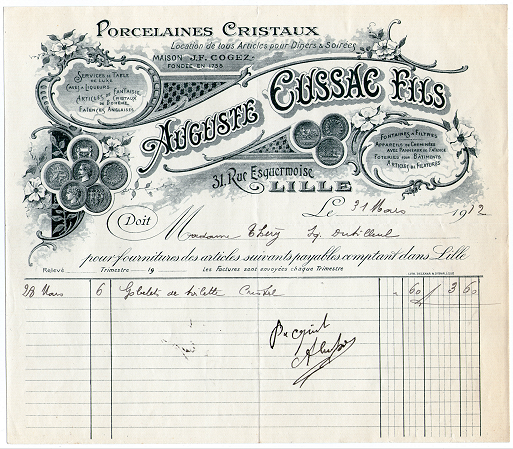 PORCELAINES CRISTAUX
Location de tous Articles pour Dîners & Soirées
MAISON J.F. COGEZ
FONDÉE EN 1735
SERVICES DE TABLE
DE LUXE
CAVES À LIQUEURS
ARTICLES DE FANTAISIE
CRISTAUX
DE BOHÊME
FAÏENCES ANGLAISES
AUGUSTE CUSSAC FILS
FONTAINES & FILTRES
APPAREILS DE CHEMINÉES
AVEC PANNEAUX DE FAÏENCE
POTERIES POUR BÂTIMENTS
ARTICLES DE FILATURES
31, Rue Esquermoise
LILLE
Le 31 Mars 1912
Doit Madame Théry Sq. Dutilleul
pour fournitures des articles suivants payables comptant dans Lille
Relevé Trimestre 19 les Factures sont envoyées chaque Trimestre
28 Mars 6 Gobelets de toilette Cristal " 60 3 60
Pr acquit